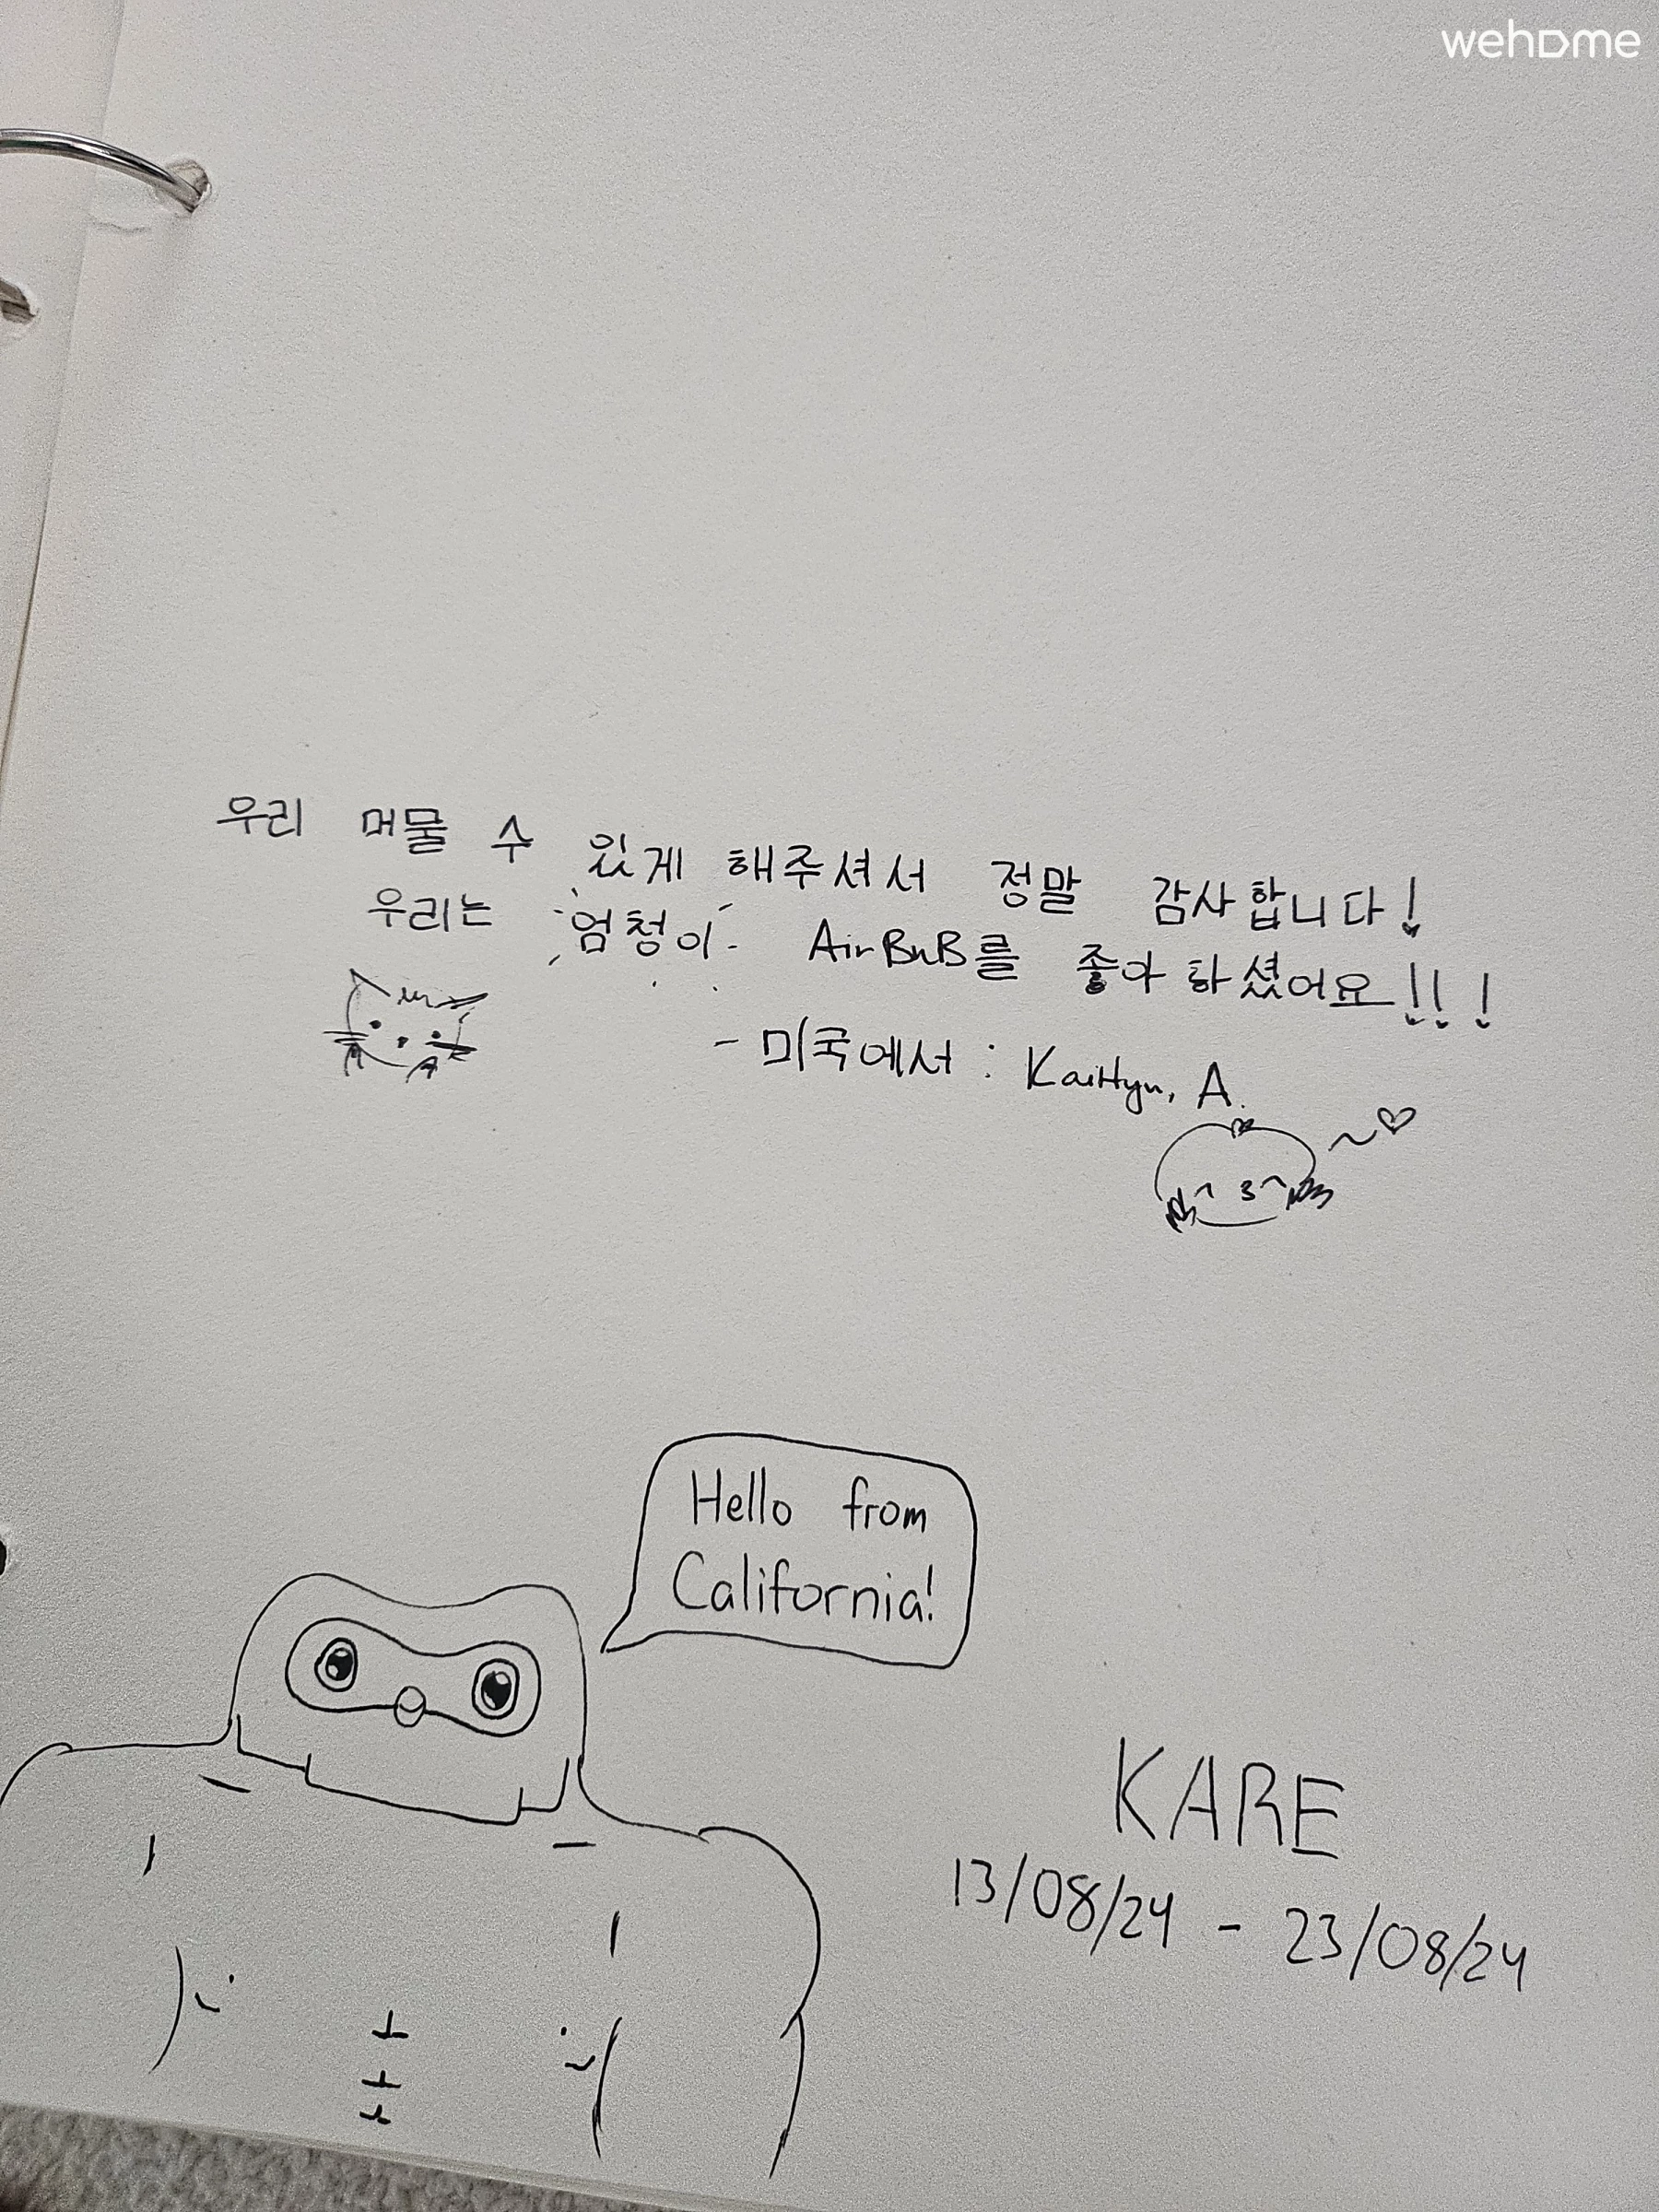 wehome
우리 머물 수 있게 해주셔서 정말 감사합니다!
우리는 엄청이 AirBnB를 좋아하셨어요!!!
- 미국에서 : Kaitlyn, A.
Hello from
California!
KARE
13/08/24 - 23/08/24